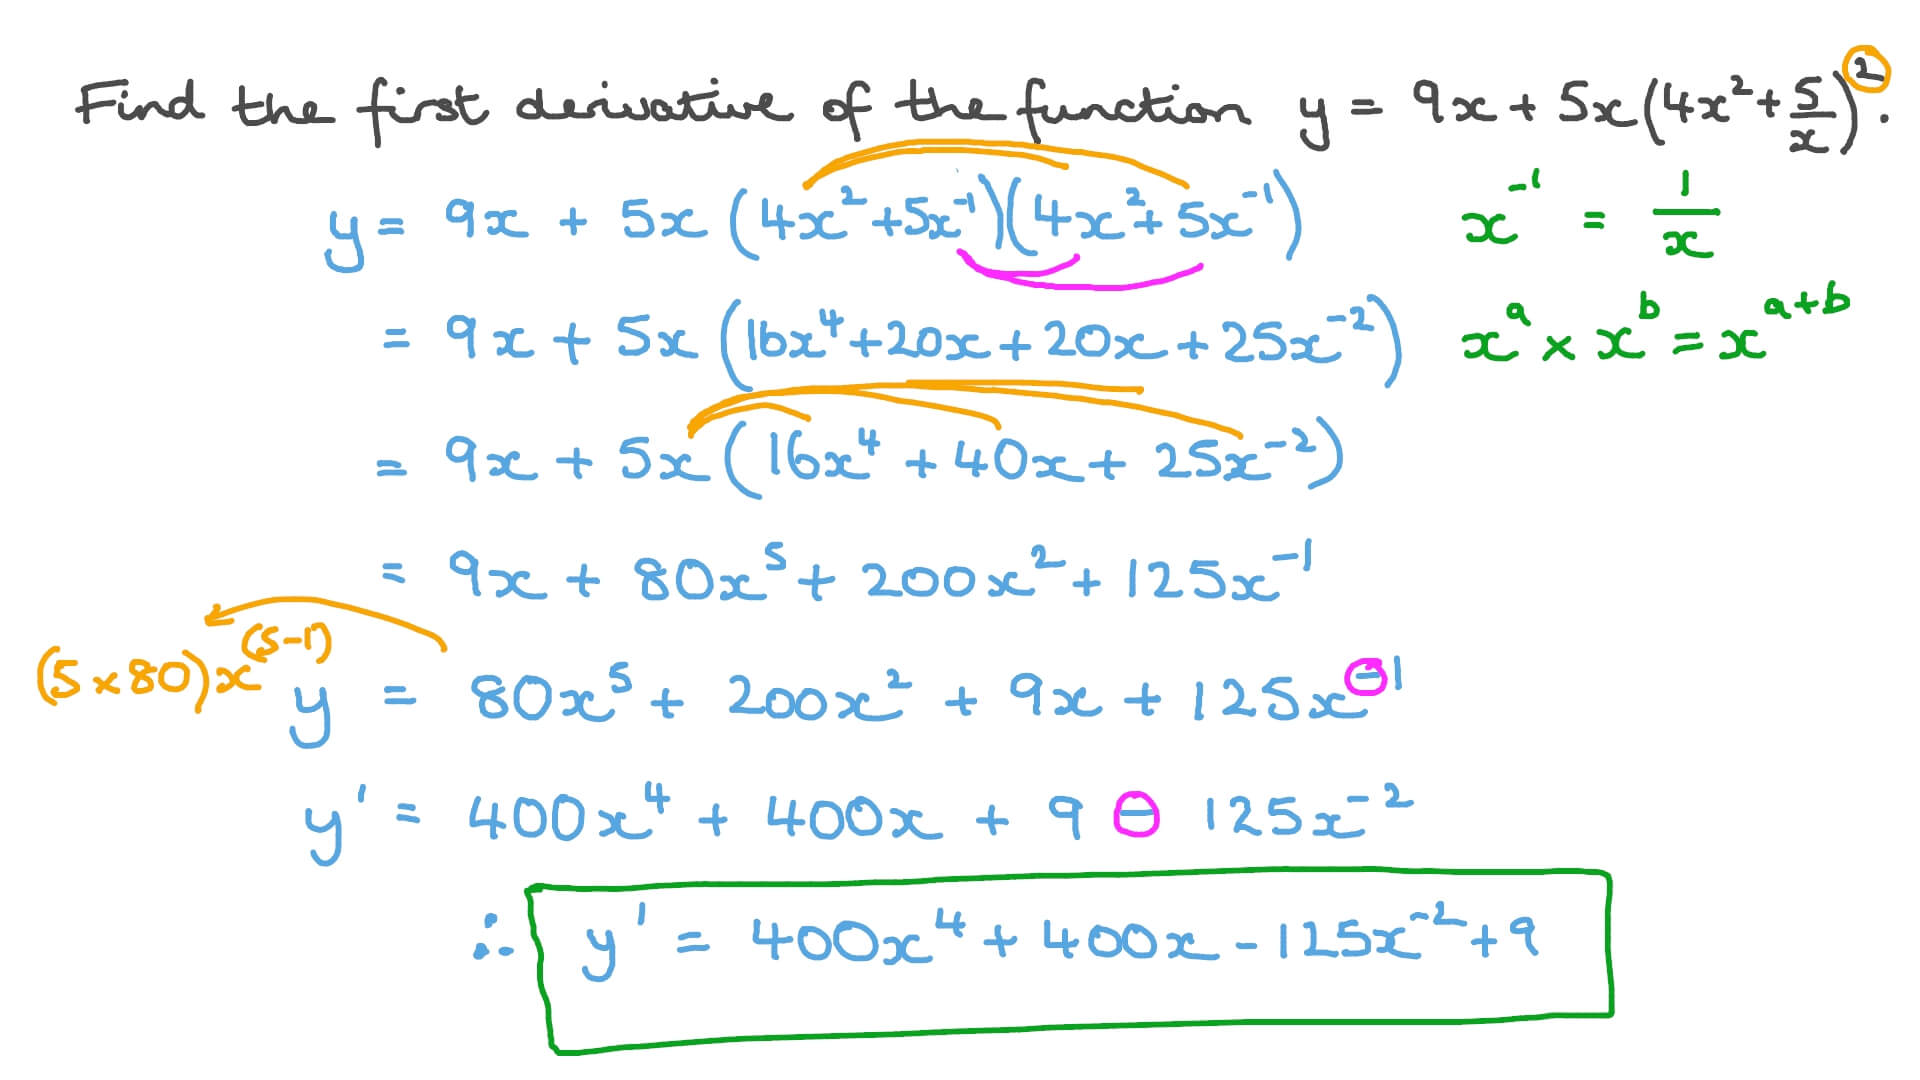 Find the first derivative of the function y = 9x + 5x(4x² + 5/x)².
y = 9x + 5x (4x² + 5x⁻¹)(4x² + 5x⁻¹)
x⁻¹ = 1/x
= 9x + 5x (16x⁴ + 20x + 20x + 25x⁻²)
xᵃ × xᵇ = xᵃ⁺ᵇ
= 9x + 5x (16x⁴ + 40x + 25x⁻²)
= 9x + 80x⁵ + 200x² + 125x⁻¹
(5 × 80) x⁽⁵⁻¹⁾
y = 80x⁵ + 200x² + 9x + 125x⁻¹
y' = 400x⁴ + 400x + 9 - 125x⁻²
∴ y' = 400x⁴ + 400x - 125x⁻² + 9